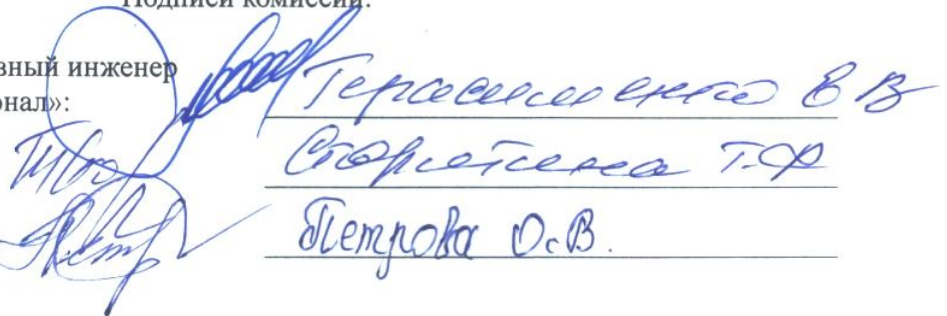 Подписи комиссии:
вный инженер
онал»:
Герасименко В В
Т.Ф
Петрова О.В.